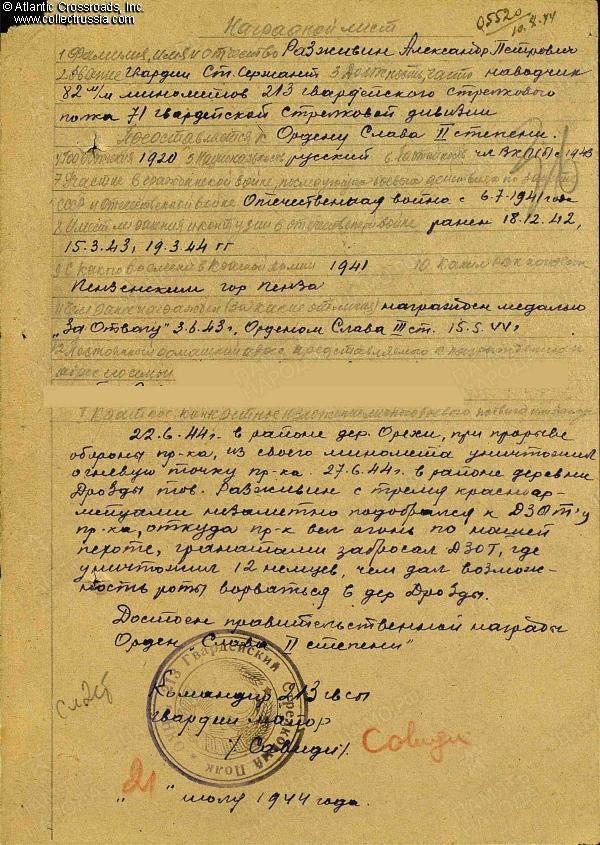 © Atlantic Crossroads, Inc.
collectrussia.com
05520
10.8.44
Наградной лист
1 Фамилия, имя и отчество Разживин Александр Петрович
2 Звание Гвардии Ст. Сержант 3 Должность, часть наводчик
82 м/м минометов 213 гвардейского стрелкового
полка 71 гвардейской стрелковой дивизии
Представляется к Ордену Слава II степени.
4 Год рождения 1920 5 Национальность русский 6 Партийность чл ВКП(б) с 1943
7 Участие в гражданской войне, последующих боевых действиях по защите
СССР и отечественной войне Отечественная война с 6.7-1941 года
8 Имеет ли ранения и контузии в отечественной войне ранен 18.12.42,
15.3.43, 19.3.44 гг
9 С какого времени в Красной армии 1941 10 Каким РВК призван
Пензенским гор Пенза
11 Чем ранее награжден (за какие отличия) награжден медалью
„За Отвагу" 3.6.43 г, Орденом Слава III ст. 15.5.44 г
12 Постоянный домашний адрес представляемого к награждению и
адрес его семьи
I Краткое, конкретное изложение личного боевого подвига
22.6.44 г. в районе дер. Орехи, при прорыве
обороны пр-ка, из своего миномета уничтожил
огневую точку пр-ка. 27.6.44 г. в районе деревни
Дрозды тов. Разживин с тремя красноар-
мейцами незаметно подобрался к ДЗОТ'у
пр-ка, откуда пр-к вел огонь по нашей
пехоте, гранатами забросал ДЗОТ, где
уничтожил 12 немцев, чем дал возмож-
ность роты ворваться в дер Дрозды.
Достоен правительственной награды
Орден „Слава II степени"
213 Гвардейский Стрелковый Полк
Командир 213 гвсп
гвардии майор
/Савиди/.
Савиди
„21" июлу 1944 года.